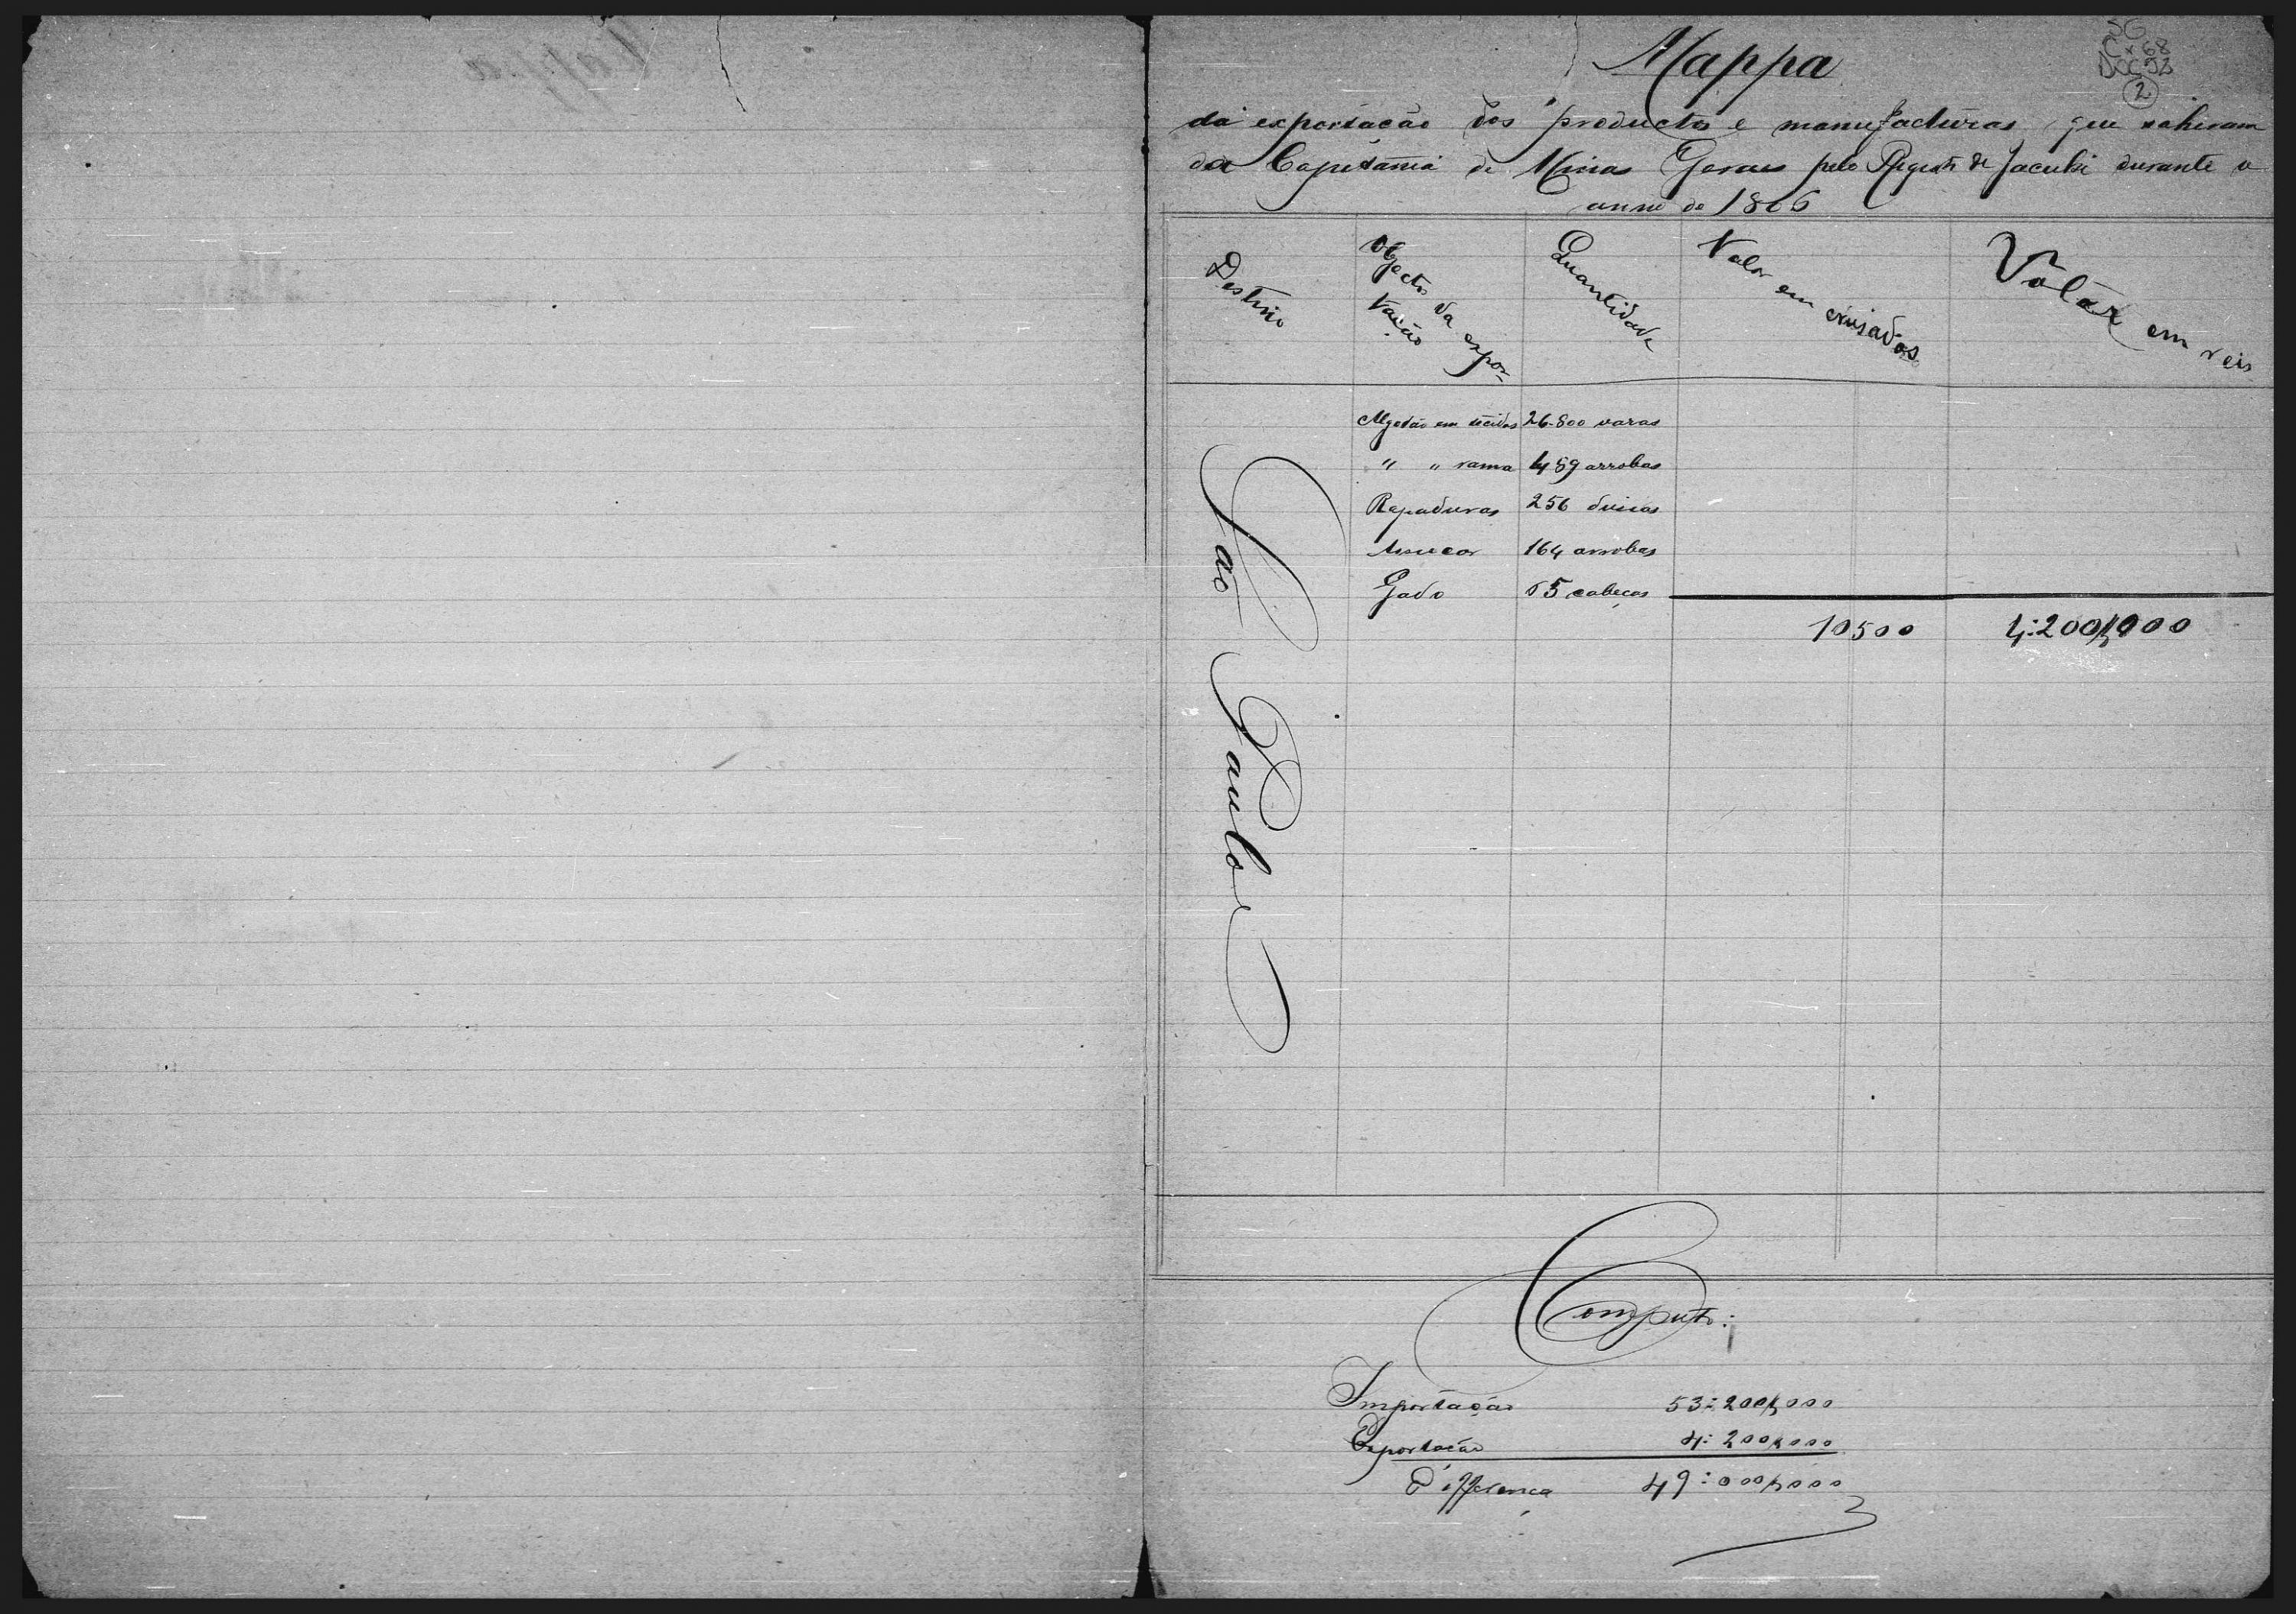 SG
Cx 68
Doc 92
2
Mappa
da exportacão dos productos e manufacturas que sahiram
da Capitania de Minas Geraes pelo Registo de Jacuhi durante o
anno de 1806
Destino
Objectos da expor-
tação
Quantidade
Valor em crusados
Valor em reis
São Paulo
Algodão em tecidos 26.800 varas
" " rama 489 arrobas
Rapaduras 256 dusias
Assucar 164 arrobas
Gado 65 cabeças
10500 4:200$000
Computo:
Importação 53:200$000
Exportacão 4:200$000
Differença 49:000$000